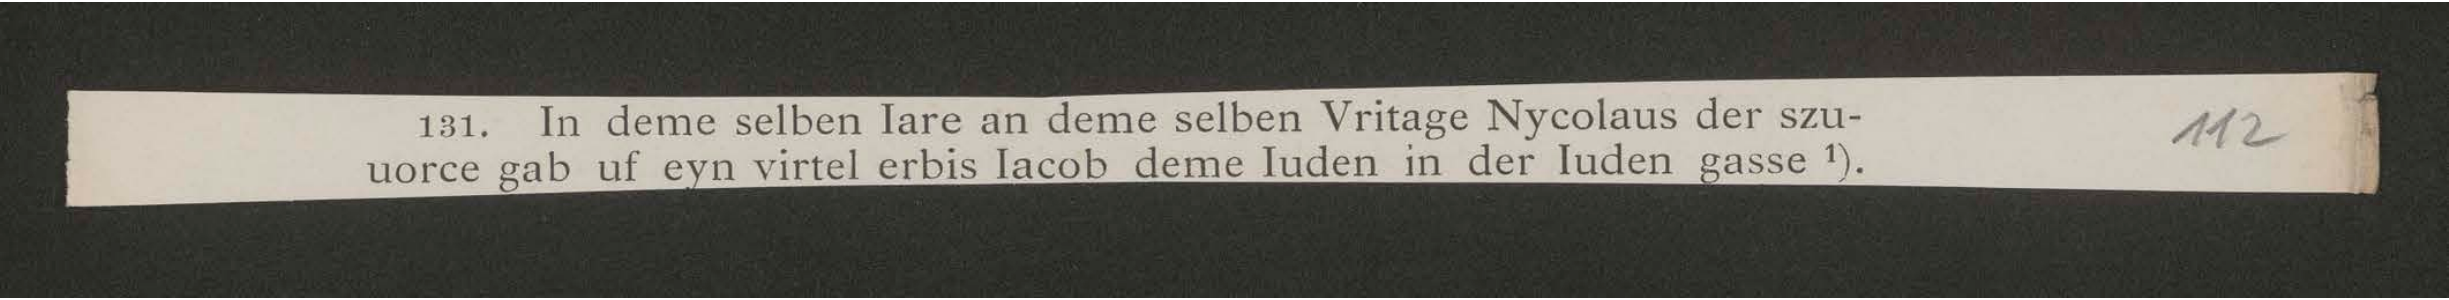 131. In deme selben Iare an deme selben Vritage Nycolaus der szu-
uorce gab uf eyn virtel erbis Iacob deme Iuden in der Iuden gasse ¹).
112